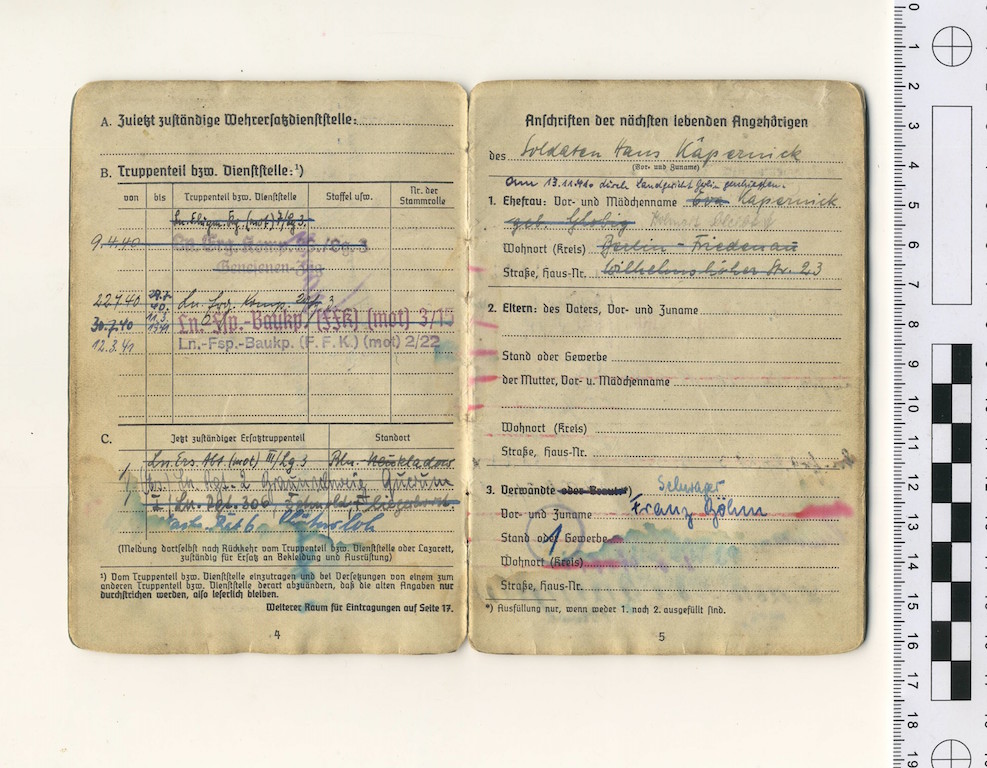 A. Zuletzt zuständige Wehrersatzdienststelle:
B. Truppenteil bzw. Dienststelle:¹)
von bis Truppenteil bzw. Dienststelle Staffel usw. Nr. der Stammrolle
9.4.40
22.7.40 Ln. Komp. 3
30.7.40 11.3. 1941 Ln. Fsp.-Baukp. (FFK) (mot) 3/15
12.3.41 Ln.-Fsp.-Baukp. (F.F.K.) (mot) 2/22
C. Jetzt zuständiger Ersatztruppenteil Standort
Ln. Ers. Abt. (mot) III/Lg. 3 Bln. Neukladow
Ln. Rgt. 2 Braunschweig Querum
(Meldung dortselbst nach Rückkehr vom Truppenteil bzw. Dienststelle oder Lazarett,
zuständig für Ersatz an Bekleidung und Ausrüstung)
¹) Vom Truppenteil bzw. Dienststelle einzutragen und bei Versetzungen von einem zum
anderen Truppenteil bzw. Dienststelle derart abzuändern, daß die alten Angaben nur
durchstrichen werden, also leserlich bleiben.
Weiterer Raum für Eintragungen auf Seite 17.
4
Anschriften der nächsten lebenden Angehörigen
des Soldaten Hans Käpernick
(Vor- und Zuname)
am 13.11.40 durch Landgericht Berlin geschieden.
1. Ehefrau: Vor- und Mädchenname Eva Käpernick
geb.
Wohnort (Kreis) Berlin - Friedenau
Straße, Haus-Nr. Wilhelmshöher Str. 23
2. Eltern: des Vaters, Vor- und Zuname
Stand oder Gewerbe
der Mutter, Vor- u. Mädchenname
Wohnort (Kreis)
Straße, Haus-Nr.
3. Verwandte oder Braut*) Schwager
Vor- und Zuname Franz Böhm
Stand oder Gewerbe
Wohnort (Kreis)
Straße, Haus-Nr.
*) Ausfüllung nur, wenn weder 1. noch 2. ausgefüllt sind.
5
0
1
2
3
4
5
6
7
8
9
10
11
12
13
14
15
16
17
18
19